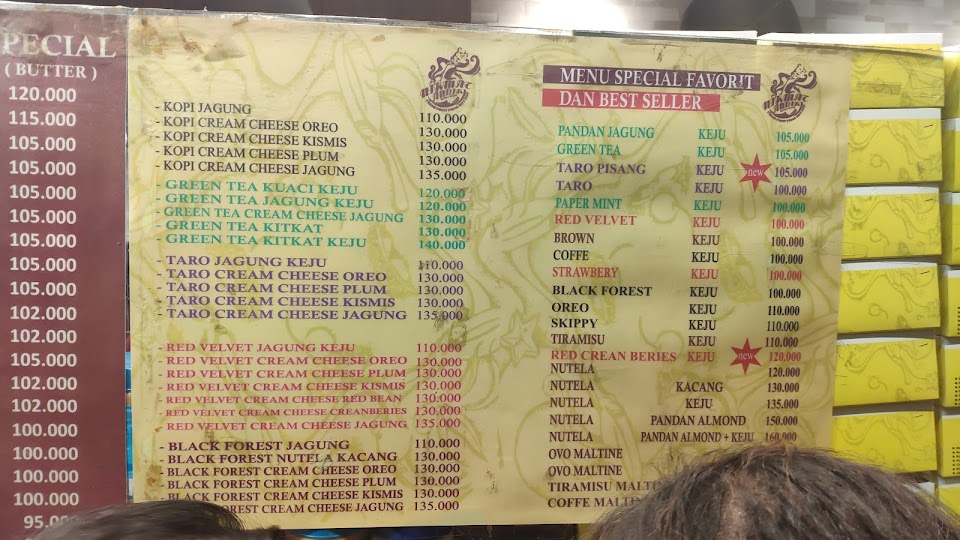 PECIAL
( BUTTER )
120.000
115.000
105.000
105.000
105.000
105.000
105.000
105.000
105.000
102.000
102.000
105.000
102.000
102.000
100.000
100.000
100.000
100.000
95.000
- KOPI JAGUNG 110.000
- KOPI CREAM CHEESE OREO 130.000
- KOPI CREAM CHEESE KISMIS 130.000
- KOPI CREAM CHEESE PLUM 130.000
- KOPI CREAM CHEESE JAGUNG 135.000
- GREEN TEA KUACI KEJU 120.000
- GREEN TEA JAGUNG KEJU 120.000
- GREEN TEA CREAM CHEESE JAGUNG 130.000
- GREEN TEA KITKAT 130.000
- GREEN TEA KITKAT KEJU 140.000
- TARO JAGUNG KEJU 110.000
- TARO CREAM CHEESE OREO 130.000
- TARO CREAM CHEESE PLUM 130.000
- TARO CREAM CHEESE KISMIS 130.000
- TARO CREAM CHEESE JAGUNG 135.000
- RED VELVET JAGUNG KEJU 110.000
- RED VELVET CREAM CHEESE OREO 130.000
- RED VELVET CREAM CHEESE PLUM 130.000
- RED VELVET CREAM CHEESE KISMIS 130.000
- RED VELVET CREAM CHEESE RED BEAN 130.000
- RED VELVET CREAM CHEESE CREANBERIES 130.000
- RED VELVET CREAM CHEESE JAGUNG 135.000
- BLACK FOREST JAGUNG 110.000
- BLACK FOREST NUTELA KACANG 130.000
- BLACK FOREST CREAM CHEESE OREO 130.000
- BLACK FOREST CREAM CHEESE PLUM 130.000
- BLACK FOREST CREAM CHEESE KISMIS 130.000
FOREST CREAM CHEESE JAGUNG 135.000
MENU SPECIAL FAVORIT
DAN BEST SELLER
PANDAN JAGUNG KEJU 105.000
GREEN TEA KEJU 105.000
TARO PISANG KEJU new 105.000
TARO KEJU 100.000
PAPER MINT KEJU 100.000
RED VELVET KEJU 100.000
BROWN KEJU 100.000
COFFE KEJU 100.000
STRAWBERY KEJU 100.000
BLACK FOREST KEJU 100.000
OREO KEJU 110.000
SKIPPY KEJU 110.000
TIRAMISU KEJU 110.000
RED CREAN BERIES KEJU new 120.000
NUTELA 120.000
NUTELA KACANG 130.000
NUTELA KEJU 135.000
NUTELA PANDAN ALMOND 150.000
NUTELA PANDAN ALMOND + KEJU 160.000
OVO MALTINE
OVO MALTINE
TIRAMISU MALTO
COFFE MALTIN